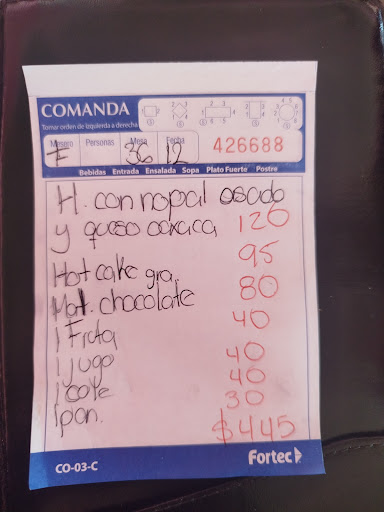 COMANDA
Tomar orden de izquierda a derecha
Mesero Personas Mesa Fecha
F 36 12 426688
Bebidas Entrada Ensalada Sopa Plato Fuerte Postre
H. con nopal asado
y queso oaxaca 120
Hot cake gra. 95
Mat. chocolate 80
1 Fruta 40
1 jugo 40
1 cafe 40
1 pan. 30
$445
CO-03-C Fortec